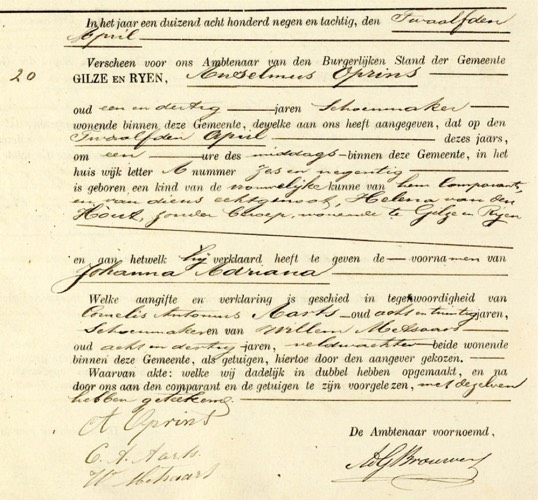 In het jaar een duizend acht honderd negen en tachtig, den Twaalfden
April
20
Verscheen voor ons Ambtenaar van den Burgerlijken Stand der Gemeente
GILZE EN RYEN, Anselmus Oprins
oud een en dertig jaren Schoenmaker
wonende binnen deze Gemeente, dewelke aan ons heeft aangegeven, dat op den
Twaalfden April dezes jaars,
om een ure des middags binnen deze Gemeente, in het
huis wijk letter A nummer Zes en negentig
is geboren een kind van de vrouwelijke kunne van hem Comparant,
en van diens echtgenoot, Helena van den
Hout, zonder beroep, wonende te Gilze en Ryen
en aan hetwelk hij verklaard heeft te geven de voornamen van
Johanna Adriana
Welke aangifte en verklaring is geschied in tegenwoordigheid van
Cornelis Antonius Aarts oud acht en twintig jaren,
Schoenmaker en van Willem
oud acht en dertig jaren, veldwachter beide wonende
binnen deze Gemeente, als getuigen, hiertoe door den aangever gekozen.
Waarvan akte: welke wij dadelijk in dubbel hebben opgemaakt, en na
door ons aan den comparant en de getuigen te zijn voorgelezen, met dezelven
hebben geteekend
A Oprins
C. A. Aarts
W
De Ambtenaar voornoemd,
Brouwers